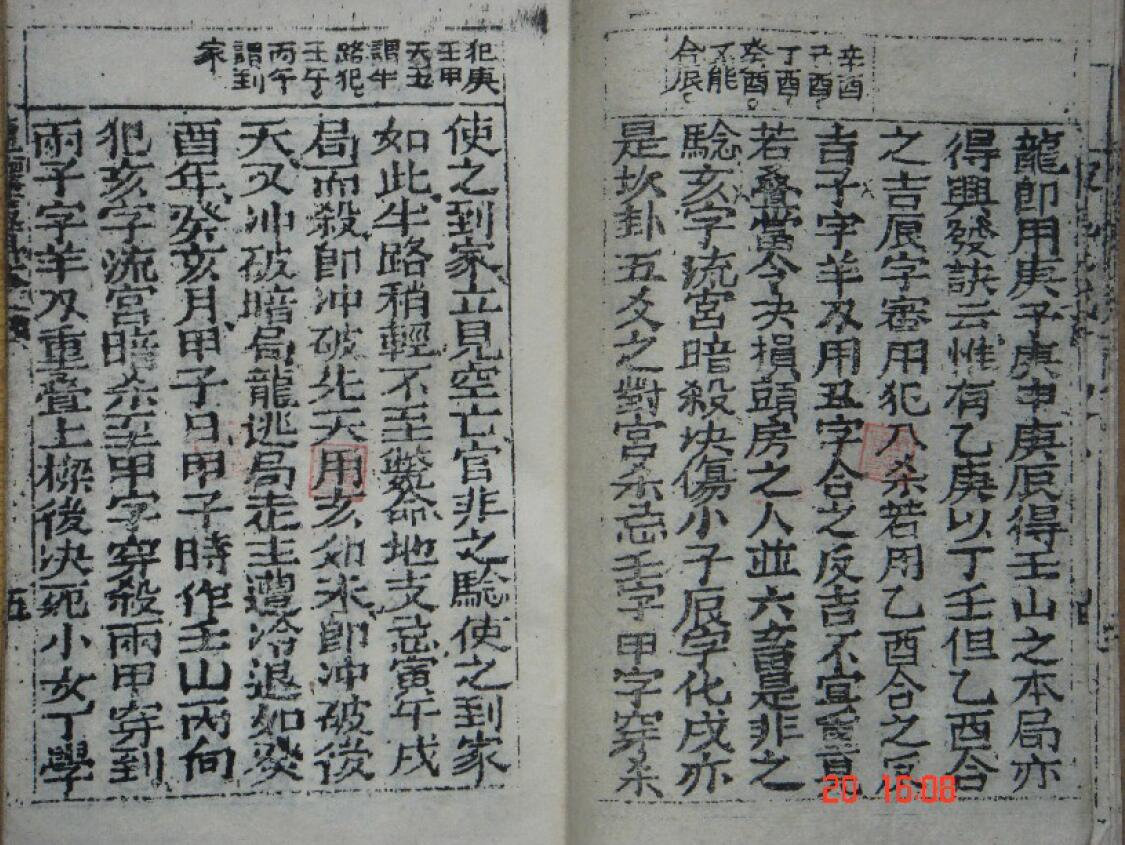 辛酉
丑酉
丁酉
癸酉
不能
合辰
龍即用庚子庚申庚辰得壬山之本局亦
得興發訣云惟有乙庚以丁壬但乙酉合
之吉辰字審用犯八杀若用乙酉合之宜
吉子字羊刃用丑字合之反吉不宜重疊
若疊當令决損頭房之人並六畜是非之
騐亥字流宮暗殺块傷小子辰字化戌亦
是坎卦五爻之對宮杀忌壬字甲字穿杀
犯庚
壬甲
天五
謂半
路犯
壬午
丙午
謂到
家
使之到家立見空亡官非之騐使之到家
如此半路稍輕不至斃命地支忌寅午戌
局而殺即冲破先天用亥卯未即冲破後
天又冲破暗局龍逃局走主遭冷退如癸
酉年癸亥月甲子日甲子時作壬山丙向
犯亥字流宮暗杀至甲字穿殺兩甲穿到
兩子字羊刃重疊上樑後决死小女丁學
五
20 16:08